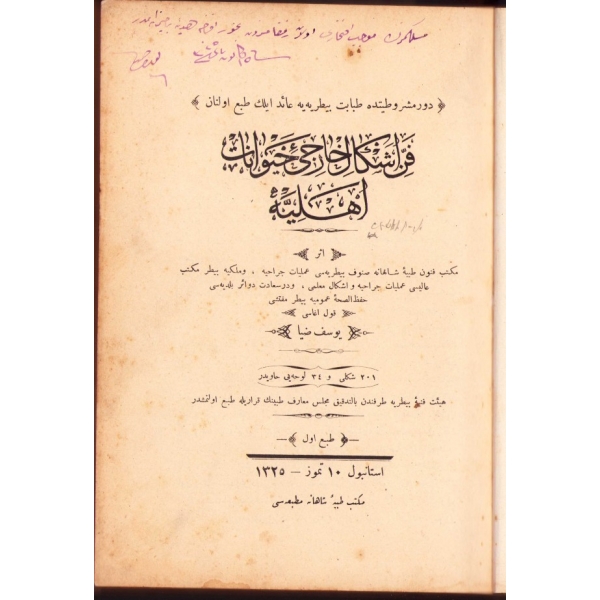 ﴿ دور مشروطیتده طبابت بیطریه‌یه عائد ایلك طبع اولنان ﴾
فن اشكال خارجیٔ حیوانات
اهلیه
﴿ اثر ﴾
مكتب فنون طبیهٔ شاهانه صنوف بیطریه‌سی عملیات جراحیه ، وملكیه بیطر مكتب
عالیسی عملیات جراحیه و اشكال معلمی ، ودرسعادت دوائر بلدیه‌سی
حفظ الصحهٔ عمومیه بیطر مفتشی
قول اغاسی
﴿ یوسف ضیا ﴾
٢٠١ شكلی و ٣٤ لوحه‌یی حاویدر
هیئت فنیهٔ بیطریه طرفندن بالتدقیق مجلس معارف طبیه‌نك قراریله طبع اولنمشدر
—﴿ طبع اول ﴾—
استانبول ١٠ تموز – ١٣٢٥
مكتب طبیهٔ شاهانه مطبعه‌سی